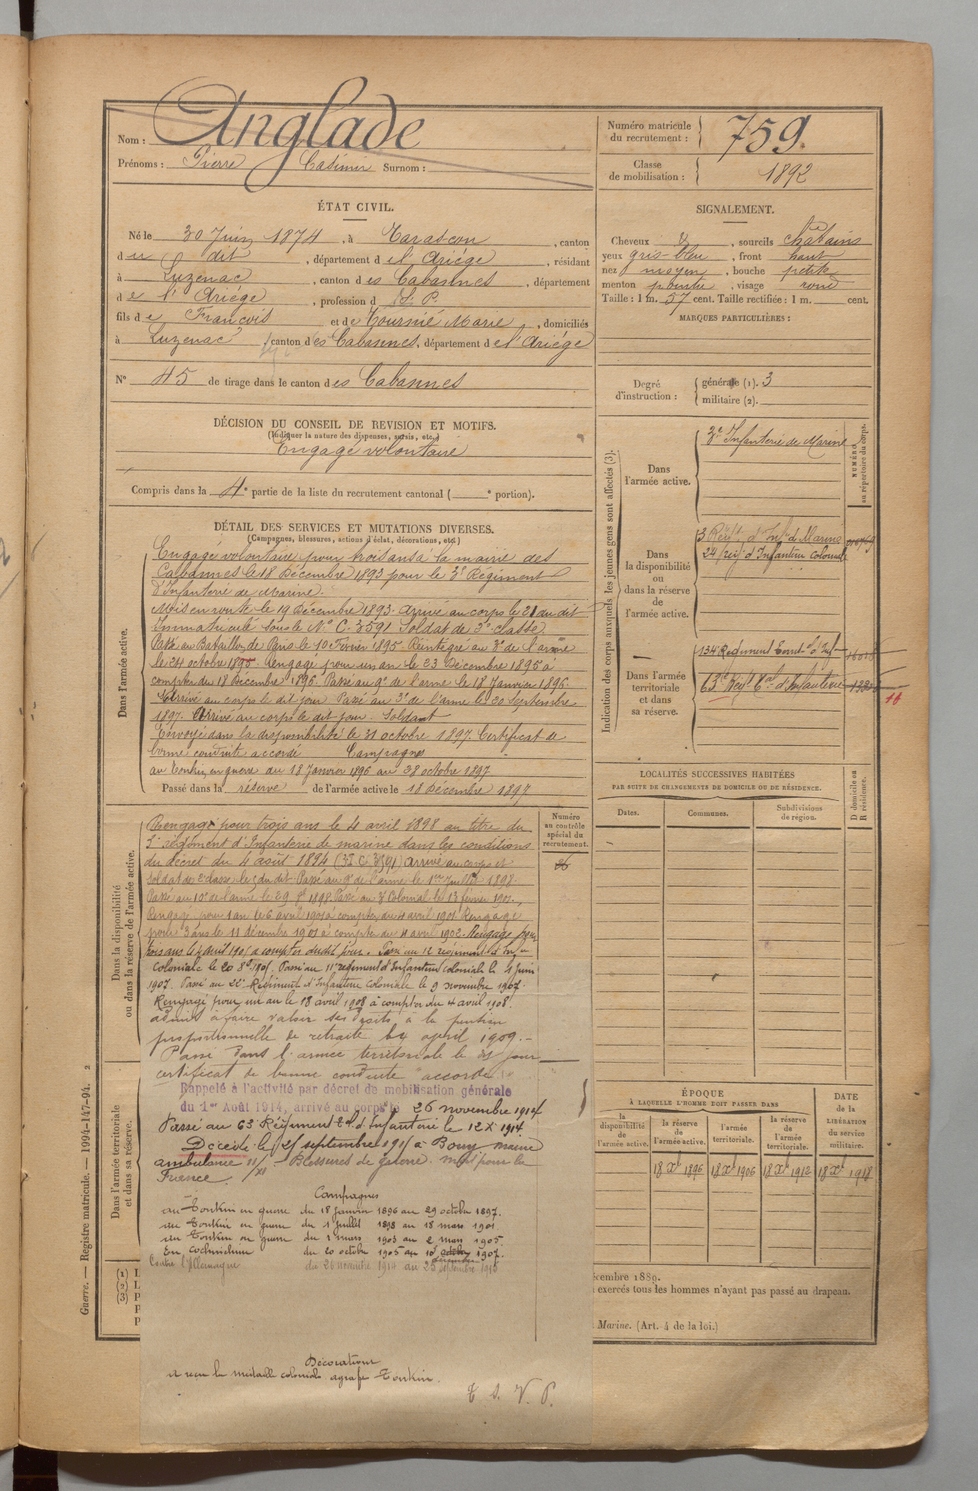 Nom : Anglade
Prénoms : Pierre Casimir Surnom :
Numéro matricule du recrutement : 759.
Classe de mobilisation : 1892
ÉTAT CIVIL.
Né le 30 Juin 1874, à Tarascon, canton
du dit, département de l'Ariége, résidant
à Luzenac, canton des Cabannes, département
de l'Ariége, profession d S. P.
fils de François et de Tournié Marie, domiciliés
à Luzenac, canton des Cabannes, département de l'Ariége
N° 45 de tirage dans le canton des Cabannes
SIGNALEMENT.
Cheveux et, sourcils châtains
yeux gris-bleu, front haut
nez moyen, bouche petite
menton pointu, visage rond
Taille : 1 m. 57 cent. Taille rectifiée : 1 m. cent.
MARQUES PARTICULIÈRES :
Degré d'instruction : générale (1). 3
militaire (2).
DÉCISION DU CONSEIL DE REVISION ET MOTIFS.
(Indiquer la nature des dispenses, sursis, etc.)
Engagé volontaire
Compris dans la 4e partie de la liste du recrutement cantonal ( e portion).
DÉTAIL DES SERVICES ET MUTATIONS DIVERSES.
(Campagnes, blessures, actions d'éclat, décorations, etc.)
Dans l'armée active.
Engagé volontaire pour trois ans à la mairie des
Cabannes le 18 Décembre 1893 pour le 3e Régiment
d'Infanterie de Marine.
Mis en route le 19 Décembre 1893. Arrivé au corps le 21 du dit
Immatriculé sous le N° C. 3591 Soldat de 2e classe
Passé au Bataillon de Paris le 10 Février 1895. Réintégré au 3e de l'arme
le 24 octobre 1895. Rengagé pour un an le 23 Décembre 1895 à
compter du 18 Décembre 1896. Passé au 9e de l'arme le 18 Janvier 1896.
Arrivé au corps le dit jour. Passé au 3e de l'arme le 30 Septembre
1897. Arrivé au corps le dit jour. Soldat
Renvoyé dans la disponibilité le 31 octobre 1897. Certificat de
bonne conduite accordé Campagnes
au Tonkin, en guerre du 18 Janvier 1896 au 28 octobre 1897
Passé dans la réserve de l'armée active le 18 Décembre 1897
Indication des corps auxquels les jeunes gens sont affectés (3).
NUMÉRO au répertoire du corps.
Dans l'armée active.
3e Infanterie de Marine
Dans la disponibilité ou dans la réserve de l'armée active.
3 Régt d'Infie de Marine
24 régt d'Infanterie coloniale
Dans l'armée territoriale et dans sa réserve.
134 Régiment Territ. d'Inf.
63e Régt d'Infanterie
LOCALITÉS SUCCESSIVES HABITÉES
PAR SUITE DE CHANGEMENTS DE DOMICILE OU DE RÉSIDENCE.
Dates. Communes. Subdivisions de région.
D domicile ou R résidence.
Numéro au contrôle spécial du recrutement.
Dans la disponibilité ou dans la réserve de l'armée active.
Rengagé pour trois ans le 4 avril 1898 au titre du
régiment d'Infanterie de marine dans les conditions
du décret du 4 août 1894 arrivé au corps et
soldat de 2e classe le 5 du dit. Passé au 9e de l'arme le 1er Juillet 1898.
Rengagé pour 1 an le 6 avril 1901 à compter du 4 avril 1901 Rengagé
pour 3 ans le 11 décembre 1901 à compter du 4 avril 1902. Rengagé pour
trois ans le 4 avril 1905 à compter du dit jour. Passé au 12 régiment d'Inf
coloniale le 20 8bre 1905. Passé au 11e régiment d'Infanterie coloniale le 1 juin
1907. Passé au 22e Régiment d'Infanterie Coloniale le 9 novembre 1907.
Rengagé pour un an le 18 avril 1908 à compter du 4 avril 1908
admis à faire valoir ses droits à la pension
proportionnelle de retraite le 4 april 1909.
Passé dans l'armée territoriale le dit jour
certificat de bonne conduite accordé.
Dans l'armée territoriale et dans sa réserve.
Rappelé à l'activité par décret de mobilisation générale
du 1er Août 1914, arrivé au corps le 26 novembre 1914
Passé au 63 Régiment d'Infanterie le 12 X 1914
Décédé le 25 septembre 1915 à Bouy marne
ambulance - Blessures de guerre. mort pour la
France.
Campagnes
au Tonkin en guerre du 18 janvier 1896 au 29 octobre 1897.
au Tonkin en guerre du 1 juillet 1898 au 18 mars 1901
au Tonkin en guerre du 2 mars 1903 au 2 mars 1905
En cochinchine du 20 octobre 1905 au 10 octobre 1907
décembre
Contre l'Allemagne du 26 novembre 1914 au 25 septembre 1915
Décorations
a reçu la médaille coloniale agrafe Tonkin.
T. S. V. P.
ÉPOQUE
À LAQUELLE L'HOMME DOIT PASSER DANS
la disponibilité de l'armée active. la réserve de l'armée active. l'armée territoriale. la réserve de l'armée territoriale.
DATE de la LIBÉRATION du service militaire.
18 Xbre 1896 18 Xbre 1906 18 Xbre 1912 18 Xbre 1918
(1)
(2)
(3)
cembre 1889.
exercés tous les hommes n'ayant pas passé au drapeau.
Marine. (Art. 4 de la loi.)
Guerre. — Registre matricule. — 1994-147-94. 2